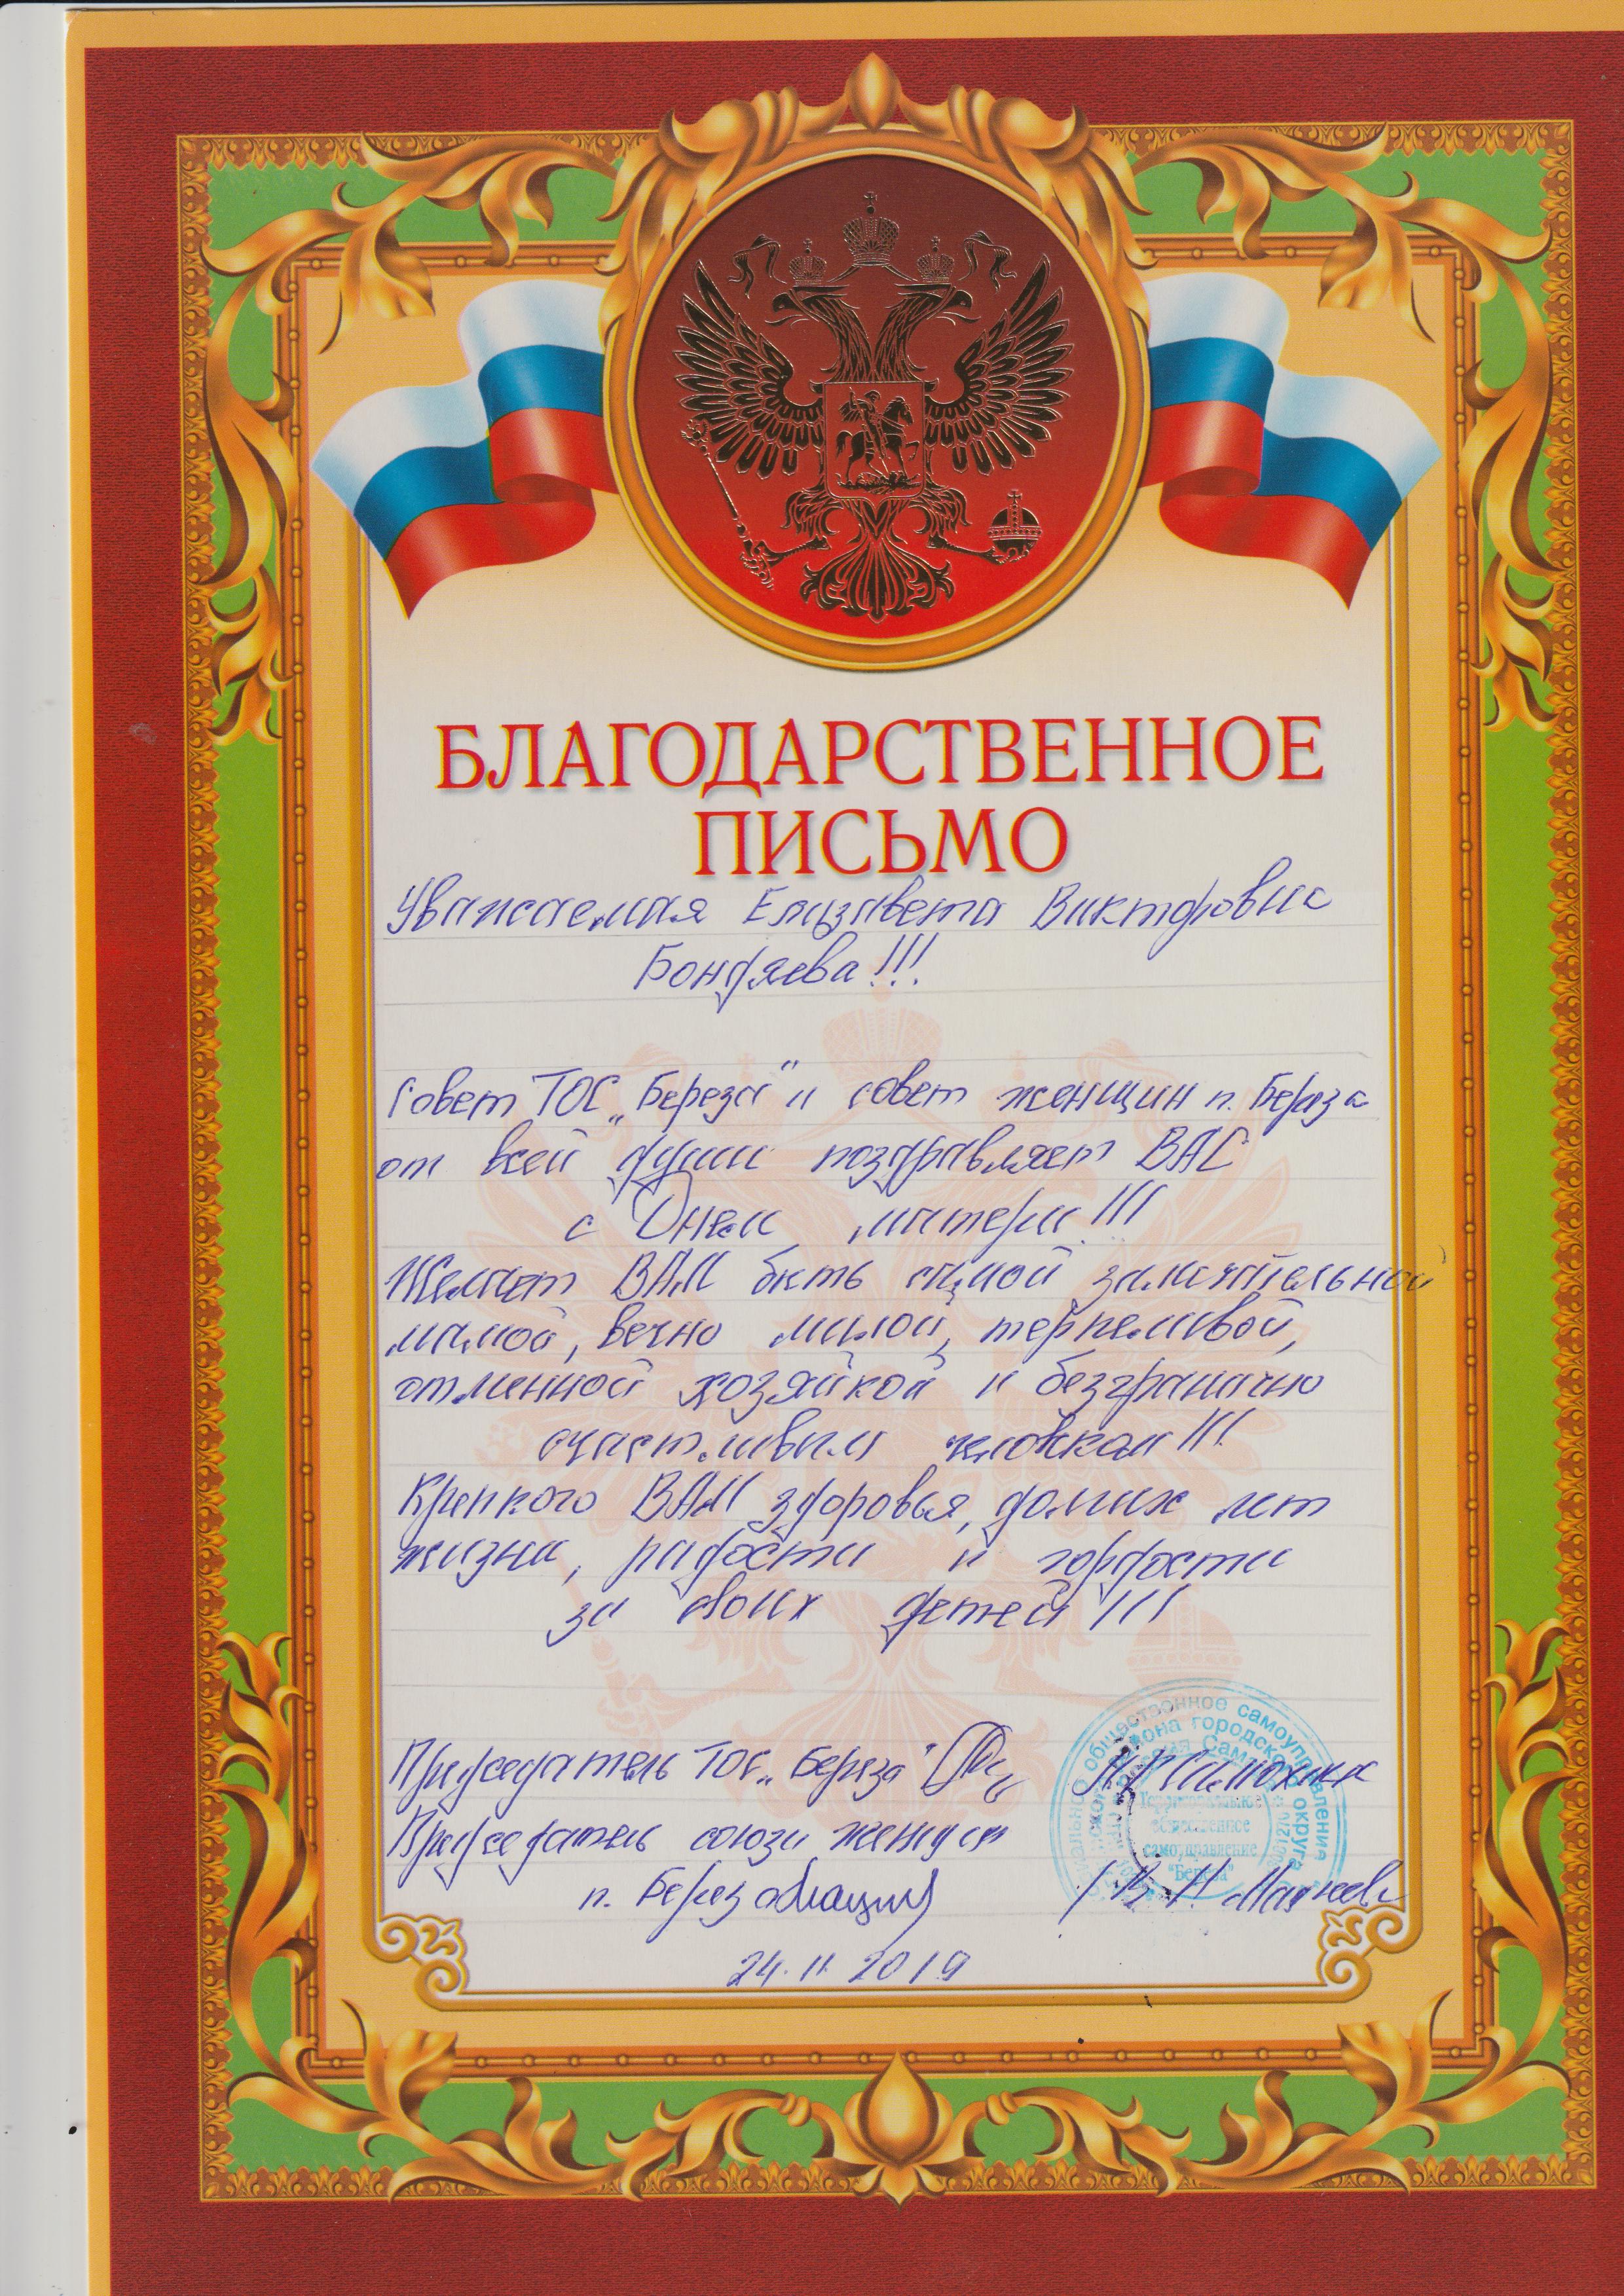 БЛАГОДАРСТВЕННОЕ
ПИСЬМО
Уважаемая Елизавета Викторовна
Бондяева!!!
Совет ТОС „Береза" и совет женщин п. Береза
от всей души поздравляет ВАС
с Днем матери!!!
Желает ВАМ быть самой замечательной
мамой, вечно милой, терпеливой,
отменной хозяйкой и безгранично
счастливым человеком!!!
Крепкого ВАМ здоровья, долгих лет
жизни, радости и гордости
за своих детей!!!
Председатель ТОС „Береза"
Председатель союза женщин
п. Береза
24.11.2019
общественное самоуправление
района городского округа
Самара
Территориальное
общественное
самоуправление
"Береза"